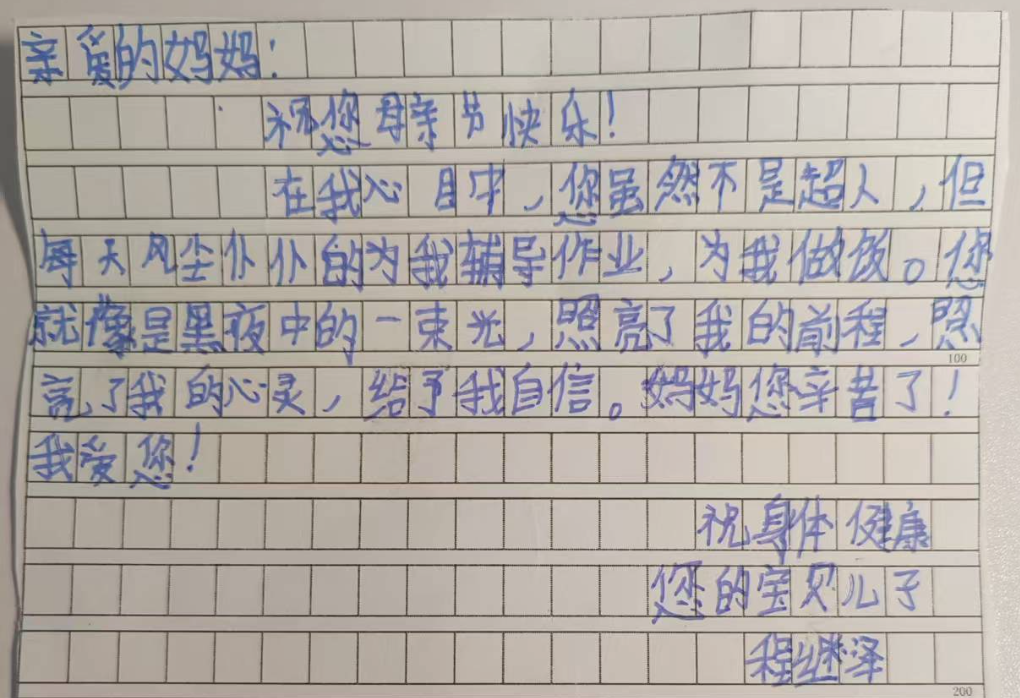 亲爱的妈妈:
祝您母亲节快乐!
在我心目中,您虽然不是超人,但
每天风尘仆仆的为我辅导作业,为我做饭。您
就像是黑夜中的一束光,照亮了我的前程,照
100
亮了我的心灵,给予我自信。妈妈您辛苦了!
我爱您!
祝身体健康
您的宝贝儿子
程继泽
200